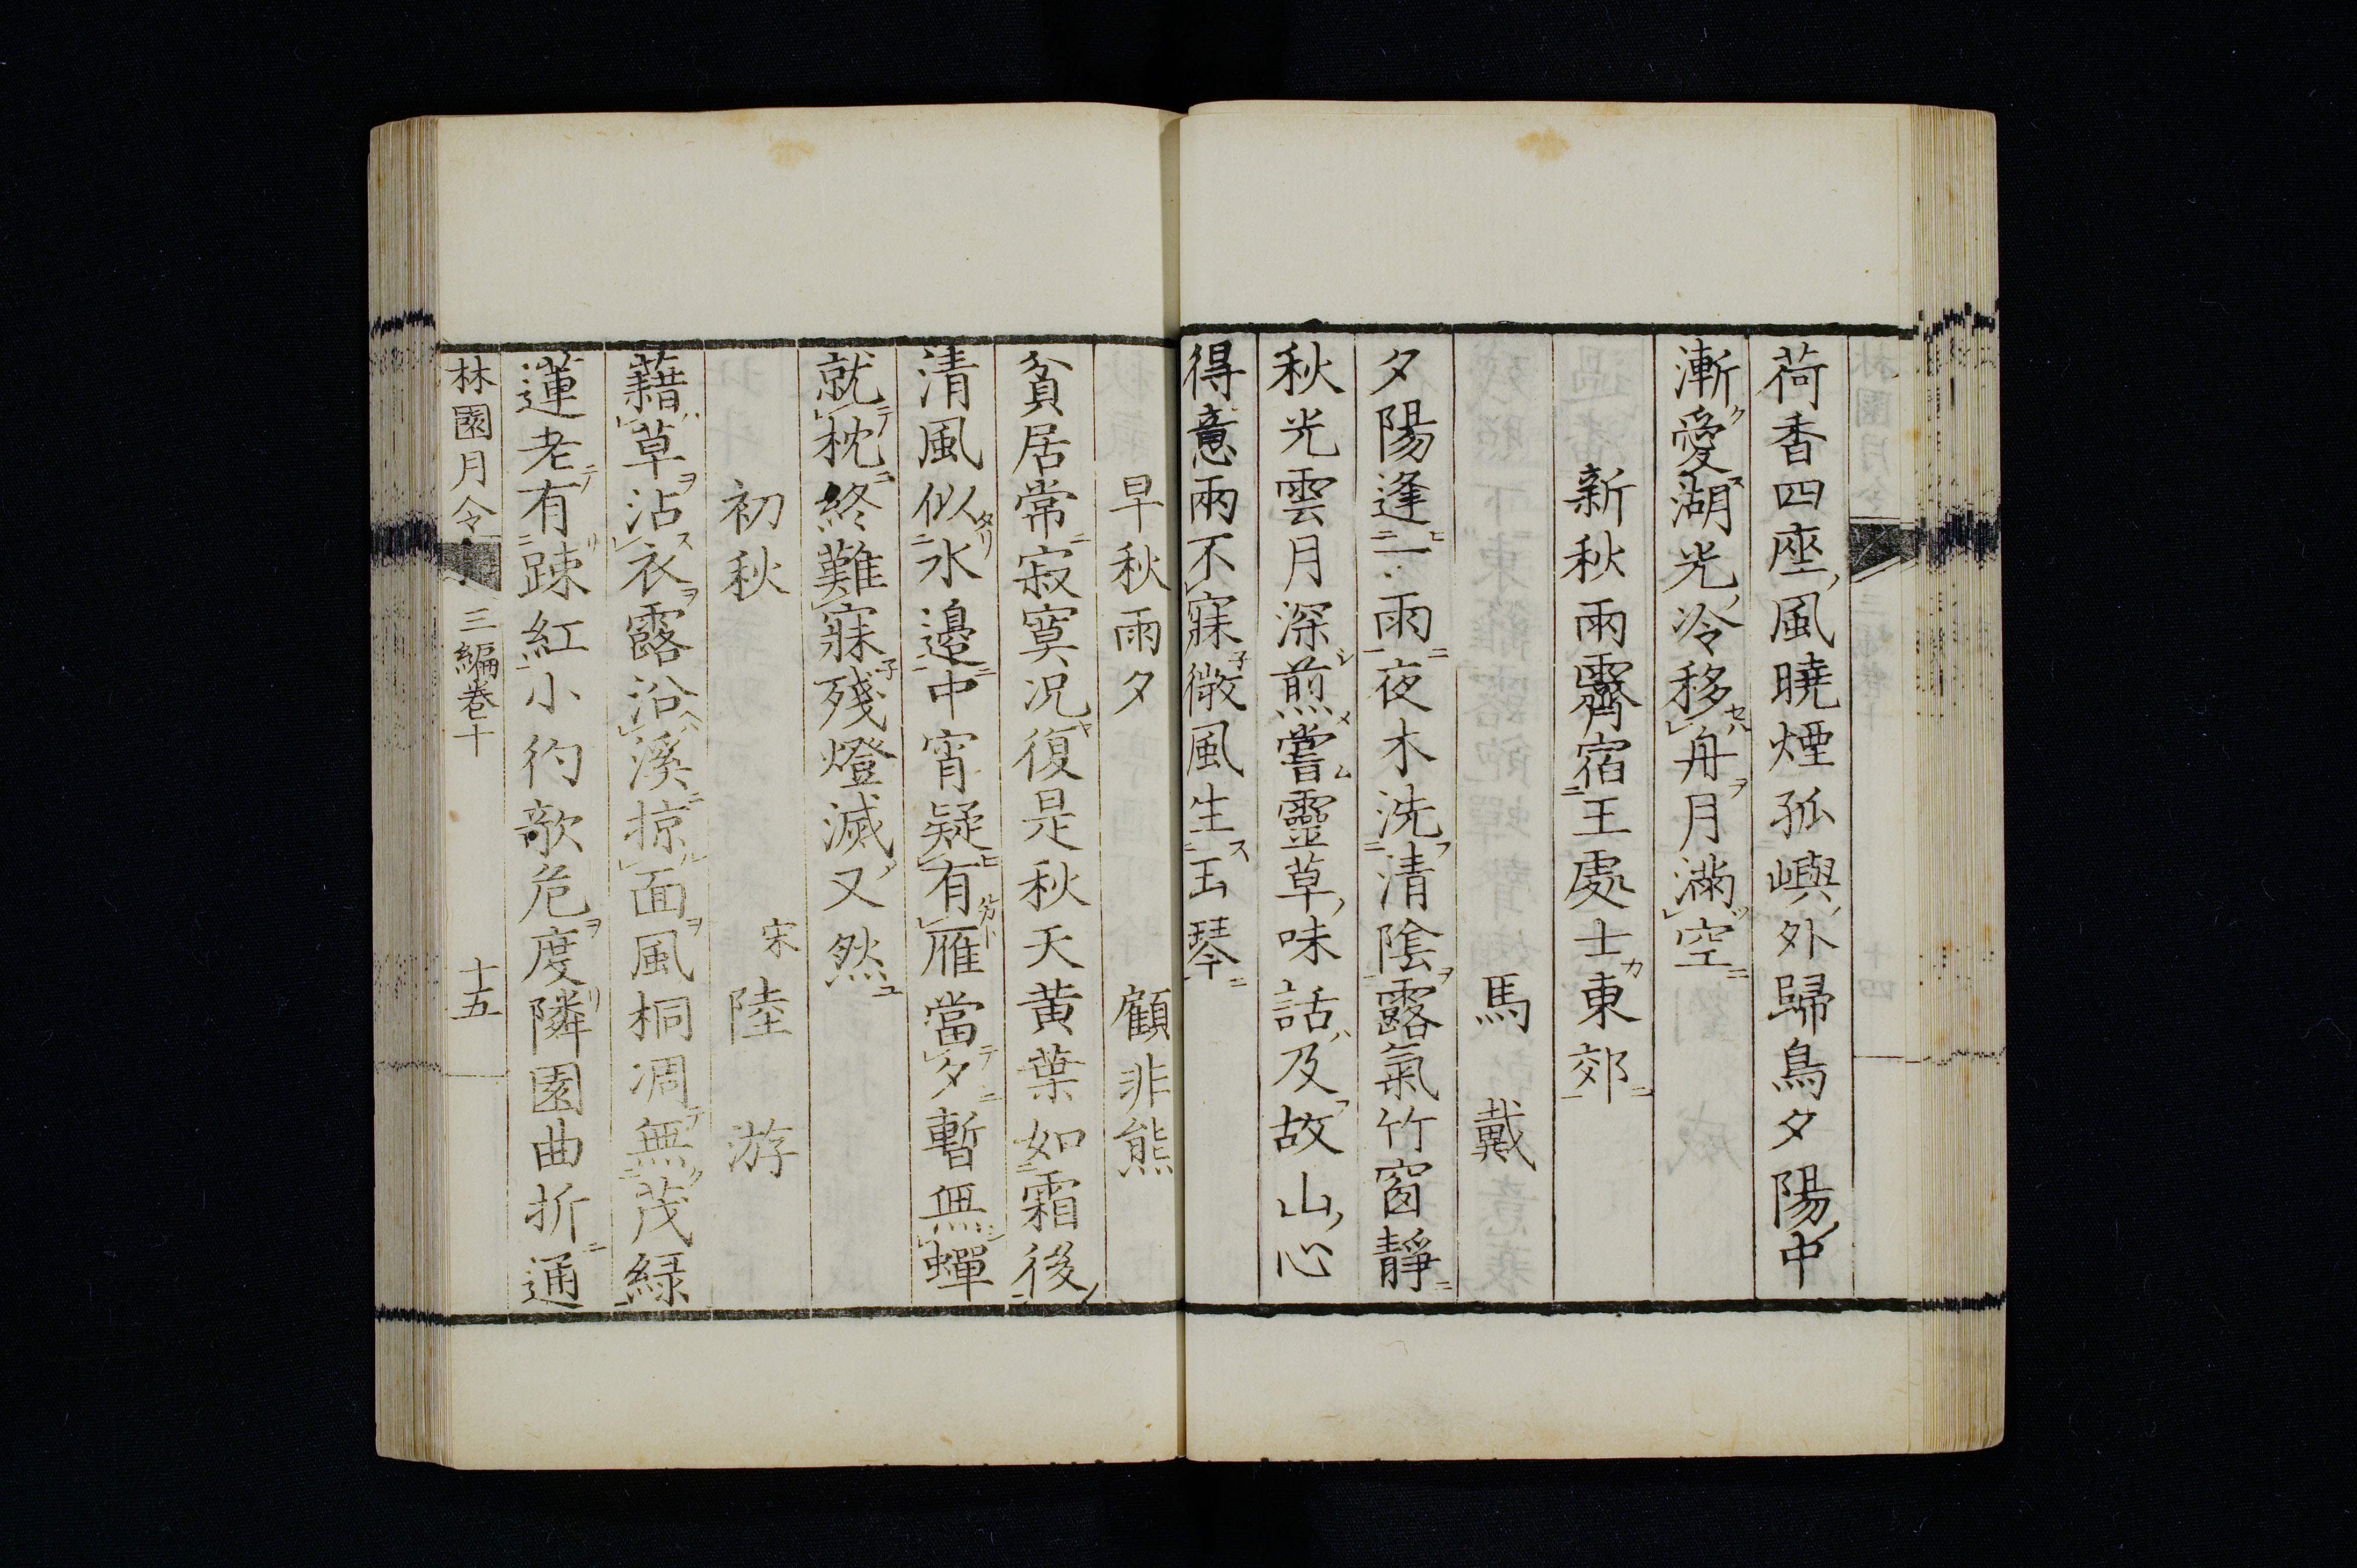 荷香四座風曉煙孤嶼外歸鳥夕陽中
漸愛湖光冷移舟月滿空
新秋雨霽宿王處士東郊
馬戴
夕陽逢一雨夜木洗清陰露氣竹窗靜
秋光雲月深煎嘗靈草味話及故山心
得意兩不寐微風生玉琴
早秋雨夕 顧非熊
貧居常寂寞况復是秋天黃葉如霜後
清風似水邊中宵疑有雁當夕暫無蟬
就枕終難寐殘燈滅又然
初秋 宋 陸游
藉草沾衣露沿溪掠面風桐凋無茂綠
蓮老有踈紅小彴欹危度隣園曲折通
林園月令 三編卷十 十五